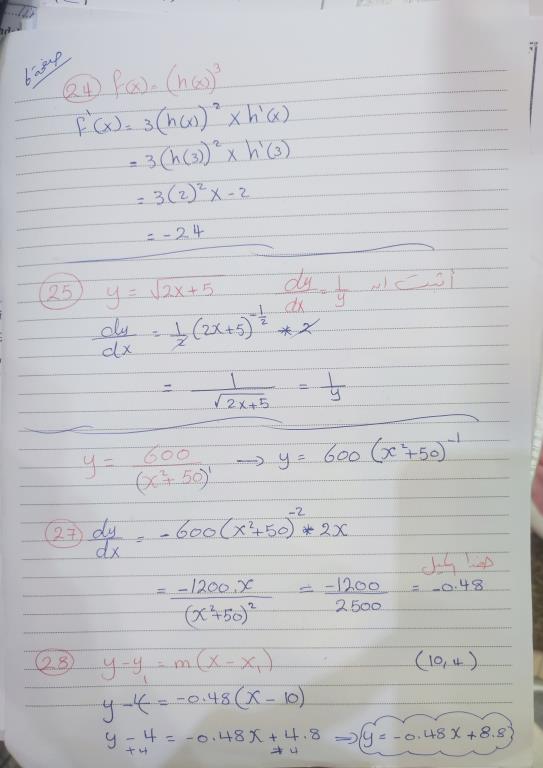 صفحة 6
24 f(x) = (h(x))³
f'(x) = 3(h(x))² × h'(x)
= 3(h(3))² × h'(3)
= 3(2)² × -2
= -24
25 y = √2x+5 dy/dx = 1/y أثبت أن
dy/dx = 1/2 (2x+5)^-1/2 * 2
= 1/√2x+5 = 1/y
y = 600/(x²+50)¹ → y = 600 (x²+50)^-1
27 dy/dx = -600(x²+50)^-2 * 2x
= -1200.x/(x²+50)² = -1200/2500 = -0.48
28 y-y₁ = m(x-x₁) (10,4)
y-4 = -0.48(x-10)
y-4 = -0.48x+4.8 ⇒ y = -0.48x+8.8
+4 +4